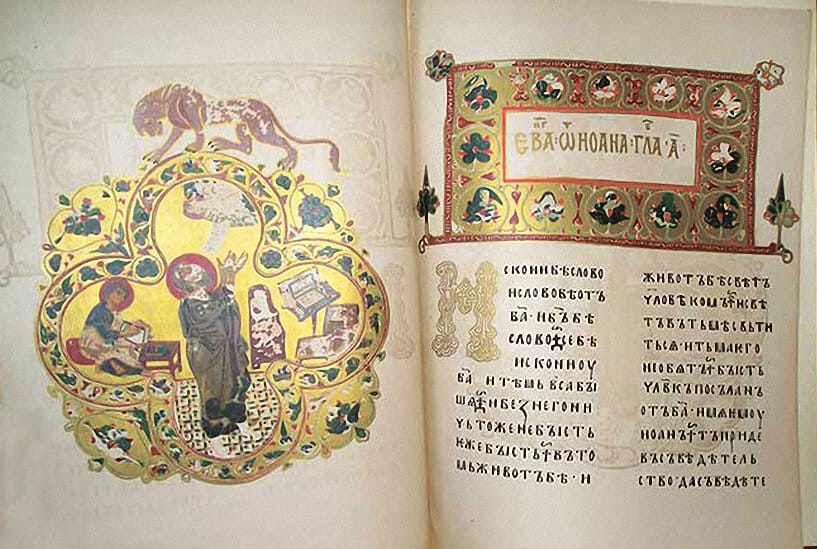 ЕВА҃ · Ѿ ИОАНА · ГЛА · А҃ :
Искони бѣ слово
и слово бѣ отъ
ба҃ · и бъ҃ бѣ
слово · се бѣ
искони оу
ба҃ и тѣмь вса бы
шѧ · и беꙁ него ни
чьтоже не бысть
ѥже бысть · въ то
мь животъ бѣ · и
животъ бѣ свѣтъ
чловѣкомъ · и свѣ
тъ въ тьмѣ свьти
тьсѧ · и тьма ѥго
не обѧтъ · бысть
чл҃вкъ посъланъ
отъ ба҃ · имѧ ѥмоу
иоанъ · тъ приде
въ съвѣдѣтель
ство · да съвѣдѣте